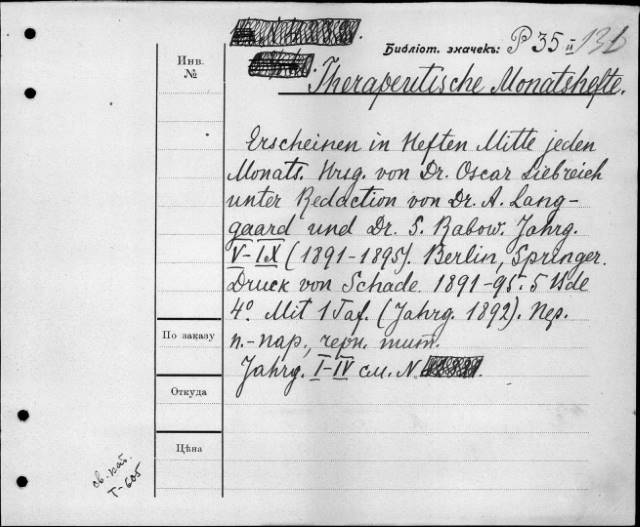 Библіот. значекъ: P 35 II
Инв.
№
Therapeutische Monatshefte.
Erscheinen in Heften Mitte jeden
Monats. Hrsg. von Dr. Oscar Liebreich
unter Redaction von Dr. A. Lang-
gaard und Dr. S. Rabow. Jahrg.
V-IX (1891-1895). Berlin, Springer.
Druck von Schade. 1891-95. 5 Bde
4°. Mit 1 Taf. (Jahrg. 1892). Пер.
п.-пар., черн. тит.
Jahrg. I-IV см. N.
По заказу
Откуда
Цѣна
св. кат.
T-605